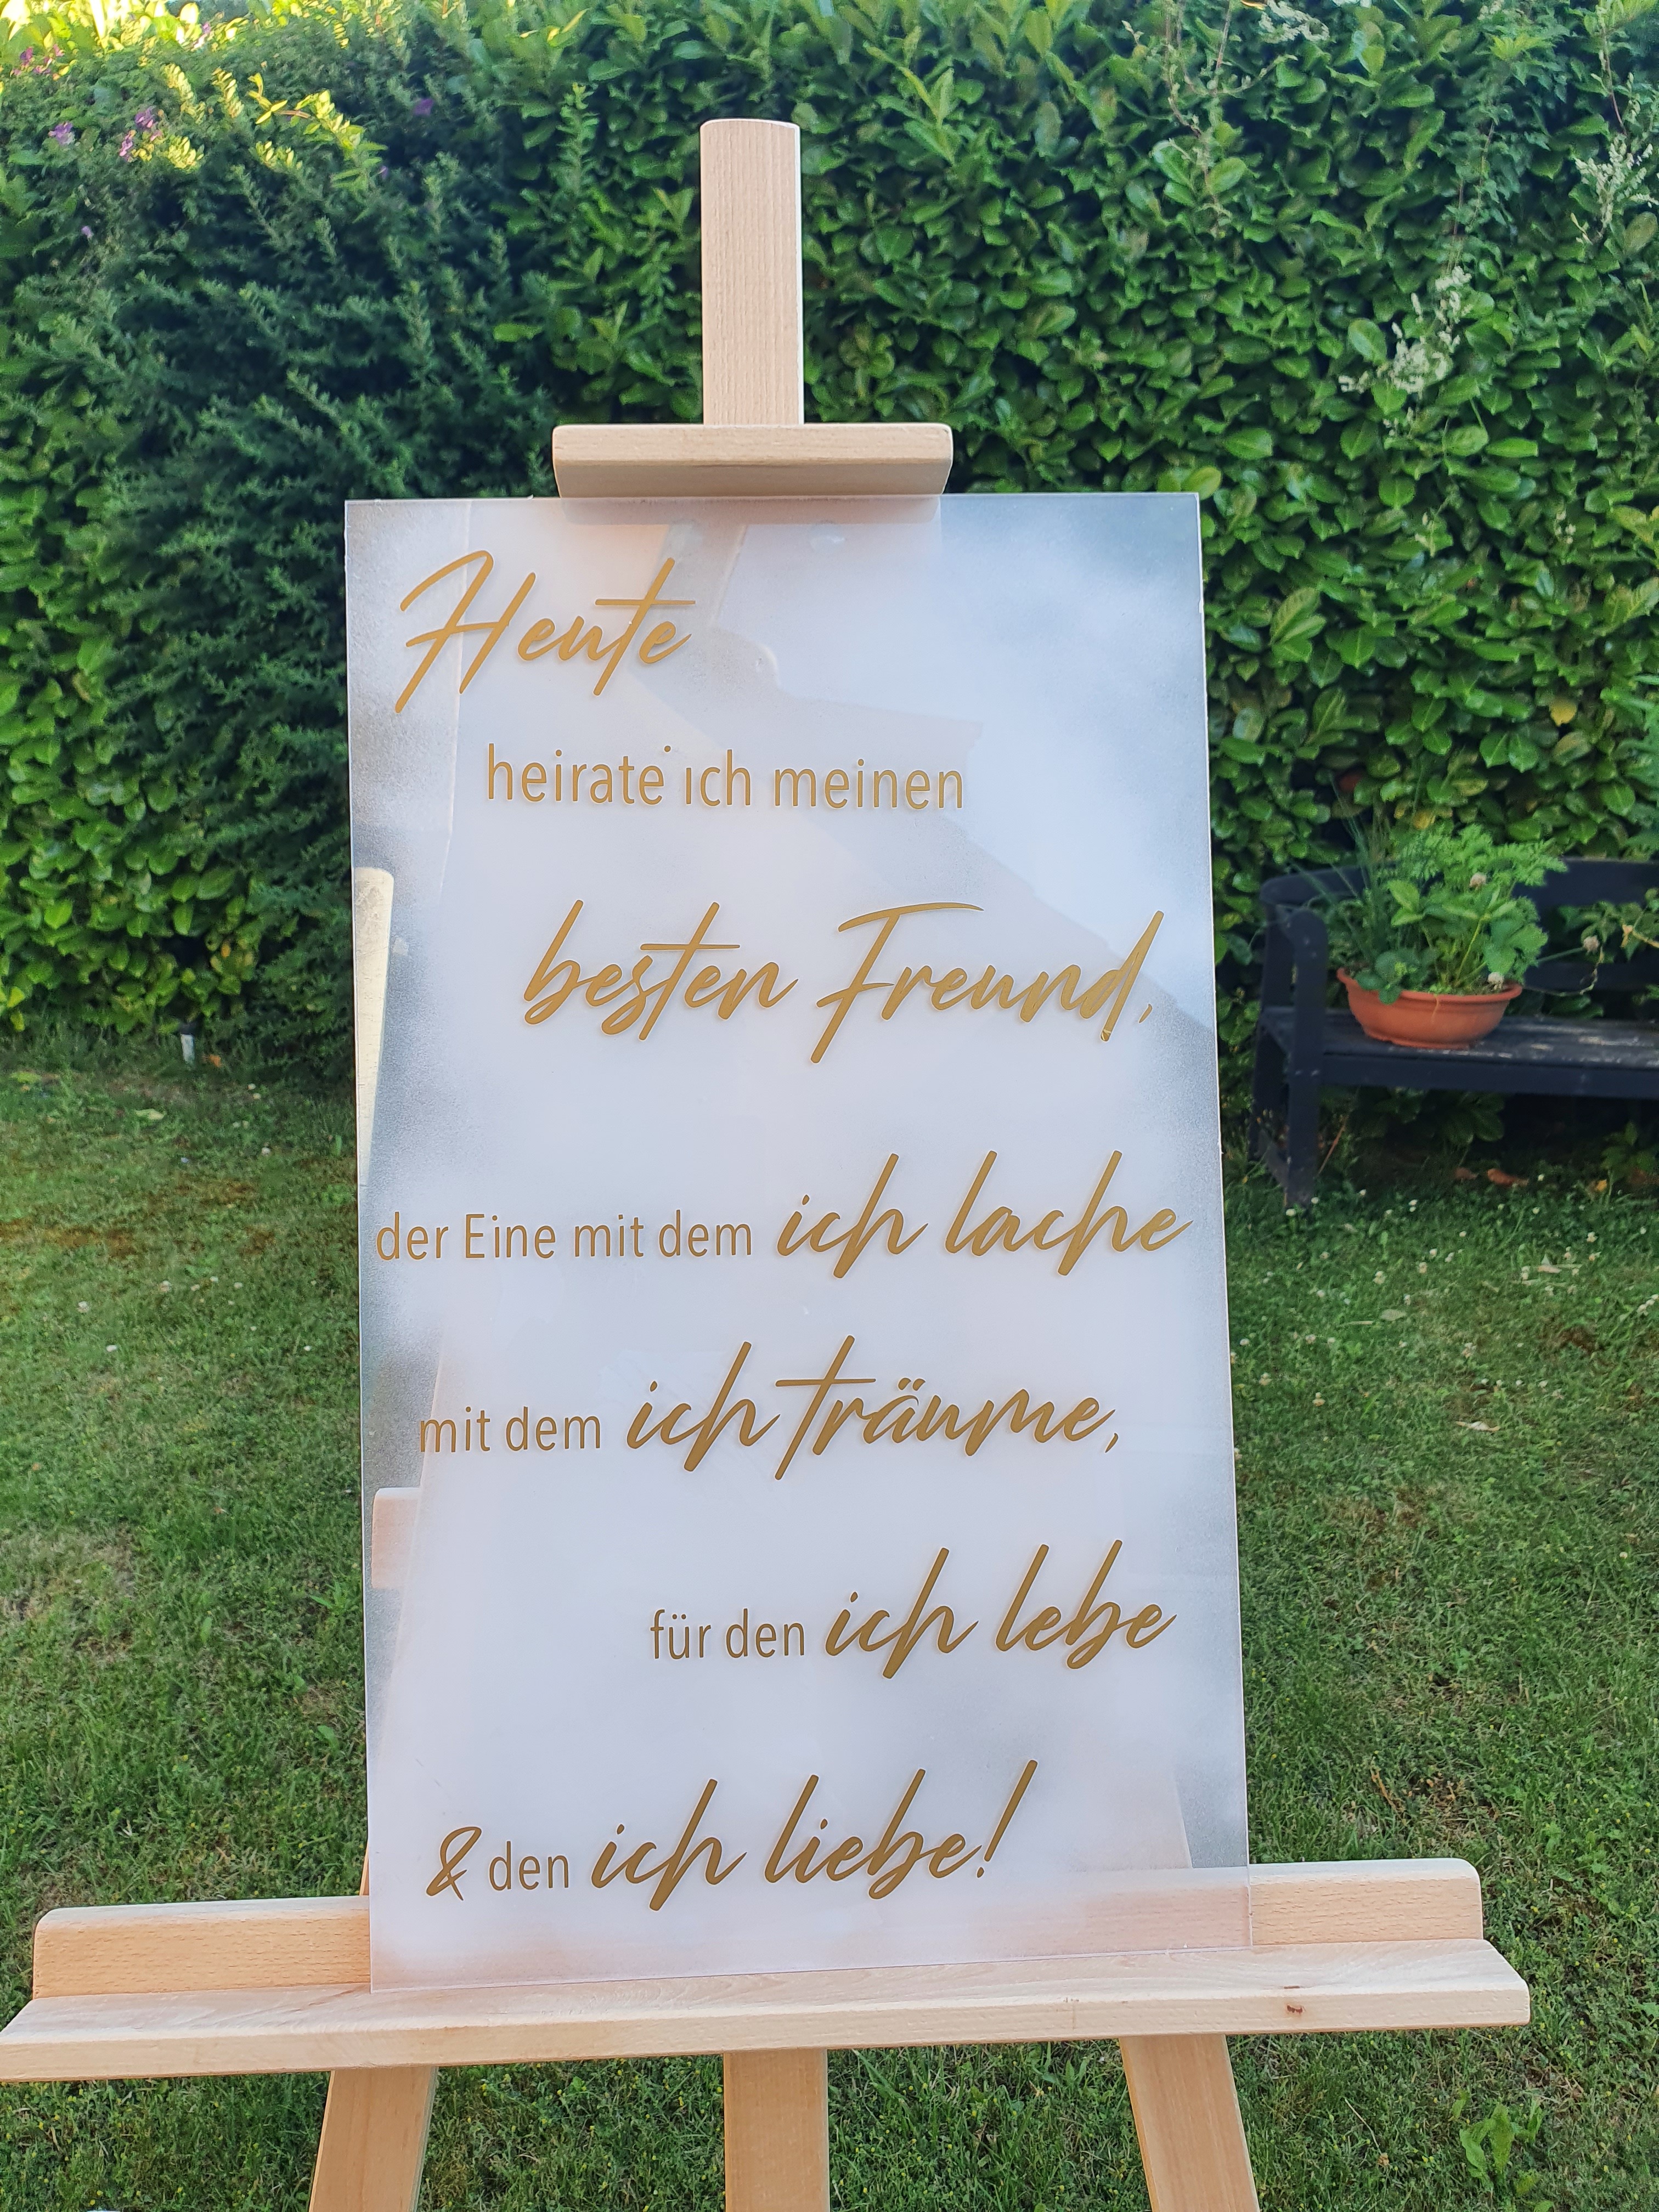 Heute
heirate ich meinen
besten Freund,
der Eine mit dem ich lache
mit dem ich träume,
für den ich lebe
& den ich liebe!